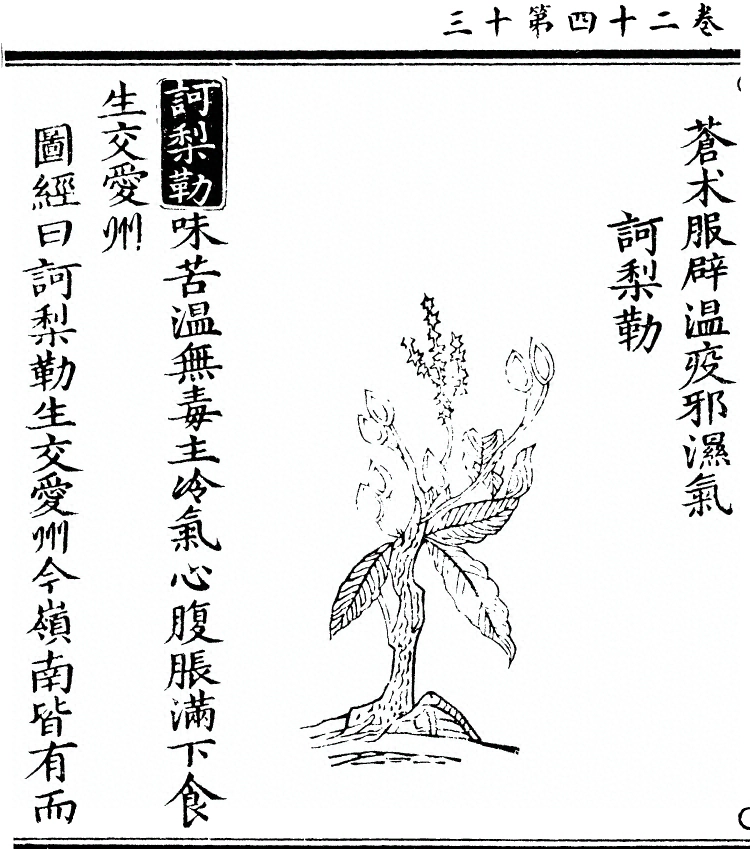 卷二十四第十三
蒼术服辟温疫邪濕氣
訶梨勒
訶梨勒味苦温無毒主冷氣心腹脹滿下食
生交愛州
圖經曰訶梨勒生交愛州今嶺南皆有而